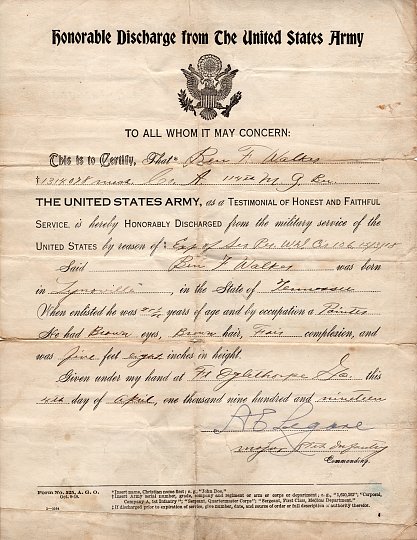 Honorable Discharge from The United States Army
TO ALL WHOM IT MAY CONCERN:
This is to Certify, That* Ben F. Walker
†1314078 Co A. 114th M G Bn.
THE UNITED STATES ARMY, as a TESTIMONIAL OF HONEST AND FAITHFUL
SERVICE, is hereby HONORABLY DISCHARGED from the military service of the
UNITED STATES by reason of‡
Said Ben F Walker was born
in in the State of Tennessee
When enlisted he was years of age and by occupation a Painter
He had Brown eyes, Brown hair, Fair complexion, and
was five feet eight inches in height.
Given under my hand at Ft Oglethorpe Ga this
4th day of April, one thousand nine hundred and nineteen
Major Infantry
Commanding.
Form No. 525, A. G. O.
Oct. 9-18.
*Insert name, Christian name first; e. g., "John Doe."
†Insert Army serial number, grade, company and regiment or arm or corps or department; e. g., "Corporal,
Company A, 1st Infantry"; "Sergeant, Quartermaster Corps"; "Sergeant, First Class, Medical Department."
‡If discharged prior to expiration of service, give number, date, and source of order or full description of authority therefor.